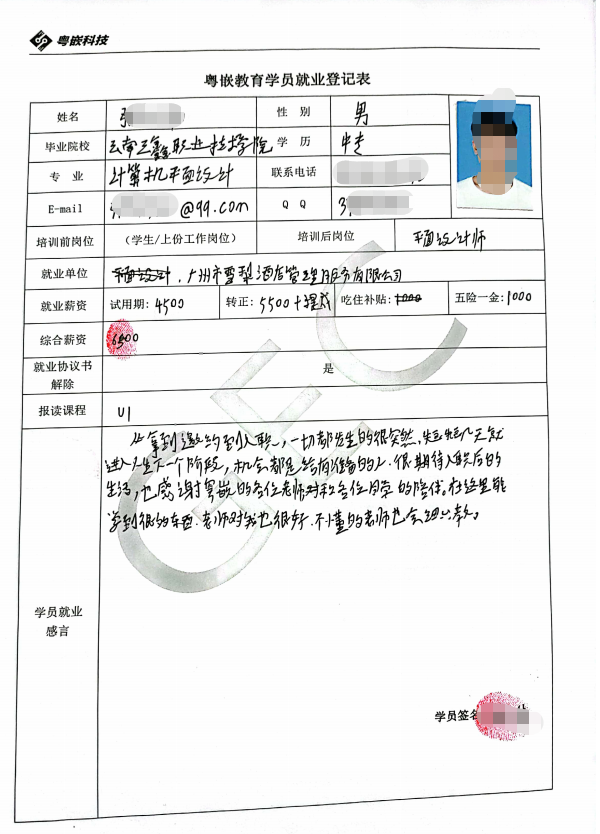 粤嵌科技
粤嵌教育学员就业登记表
姓名 张 性 别 男
毕业院校 云南三鑫职业技术学院 学 历 中专
专 业 计算机平面设计 联系电话
E-mail @qq.com Q Q 3
培训前岗位 （学生/上份工作岗位） 培训后岗位 平面设计师
就业单位 平面设计，广州市雪梨酒店管理服务有限公司
就业薪资 试用期：4500 转正：5500+提成 吃住补贴：1000 五险一金：1000
综合薪资 6500
就业协议书
解除 是
报读课程 UI
从拿到邀约到入职，一切都发生的很突然，短短几天就
进入人生下一个阶段，机会都是给有准备的人．很期待入职后的
生活，也感谢粤嵌的各位老师对和各位同学的陪伴。在这里能
学到很多东西．老师对我也很好．不懂的老师也会细心教。
学员就业
感言
学员签名
GEC